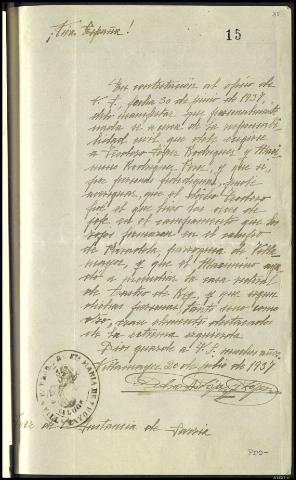 ¡Viva España!
15
En contestación al oficio de
V.S., fecha 30 de junio de 1937,
debo manifestar que personalmente
nada sé acerca de la responsabi-
lidad civil que debe exigirse
a Teodoro López Rodríguez y Maxi-
mino Rodríguez, y que sí,
por personas fidedignas, pude
averiguar, que el dicho Teodoro
fue el que hizo las veces de
jefe en el campamento que los
rojos formaron en el campo
de parroquia de Villa-
mayor, y que el Maximino ayu-
dó a incendiar la casa rectoral
de Castro de Rey, y que según
dichas personas, tanto uno como
otro, eran elementos destacados
de la extrema izquierda.
Dios guarde a V.S. muchos años.
Villamayor, 20 de julio de 1937
Juez de Instancia de Sarria